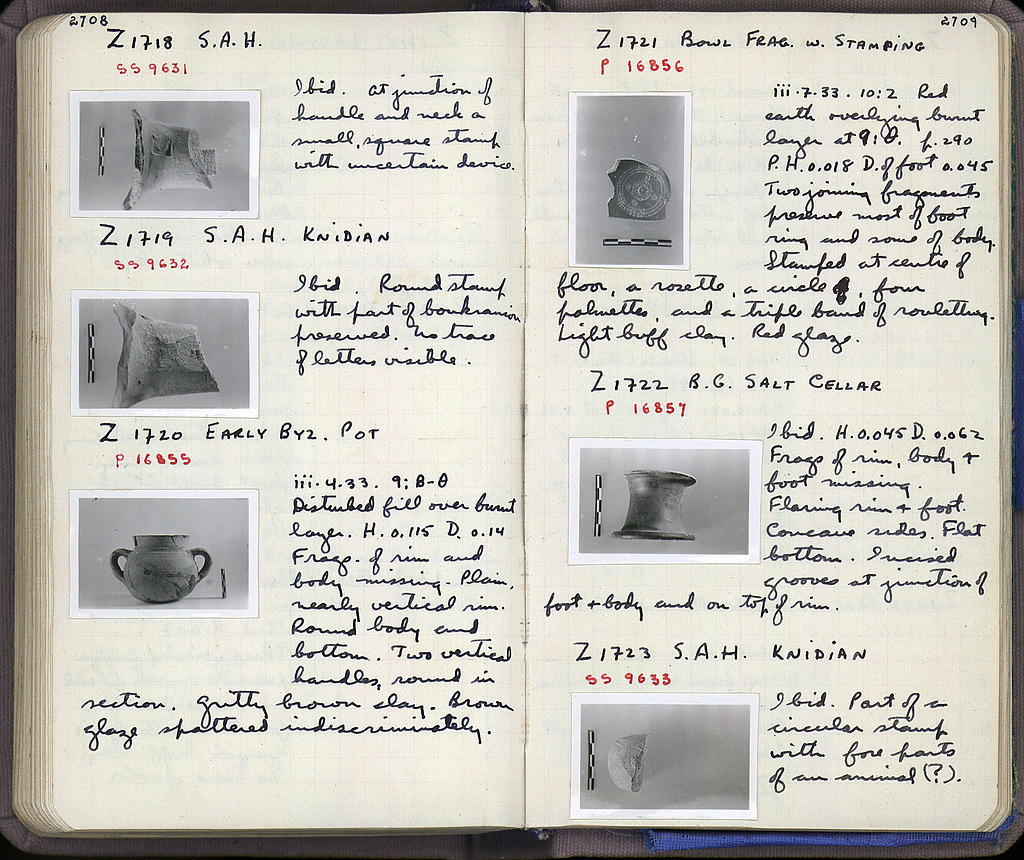 2708
Z 1718 S.A.H.
SS 9631
Ibid. at junction of
handle and neck a
small, square stamp
with uncertain device.
Z 1719 S.A.H. KNIDIAN
SS 9632
Ibid. Round stamp
with part of boukranion
preserved. No trace
of letters visible.
Z 1720 EARLY BYZ. POT
P 16855
iii.4.33. 9:B-Θ
Disturbed fill over burnt
layer. H. 0.115 D. 0.14
Frags. of rim and
body missing. Plain,
nearly vertical rim.
Round body and
bottom. Two vertical
handles, round in
section. Gritty brown clay. Brown
glaze spattered indiscriminately.
2709
Z 1721 BOWL FRAG. W. STAMPING
P 16856
iii.7.33. 10:2 Red
earth overlying burnt
layer at 9:Θ. p.290
P.H. 0.018 D. of foot 0.045
Two joining fragments
preserve most of foot
ring and some of body.
Stamped at centre of
floor, a rosette, a circle, four
palmettes, and a triple band of rouletting.
Light buff clay. Red glaze.
Z 1722 B.G. SALT CELLAR
P 16857
Ibid. H. 0.045 D. 0.062
Frags of rim, body +
foot missing.
Flaring rim + foot.
Concave sides. Flat
bottom. Incised
grooves at junction of
foot + body and on top of rim.
Z 1723 S.A.H. KNIDIAN
SS 9633
Ibid. Part of a
circular stamp
with fore parts
of an animal (?).